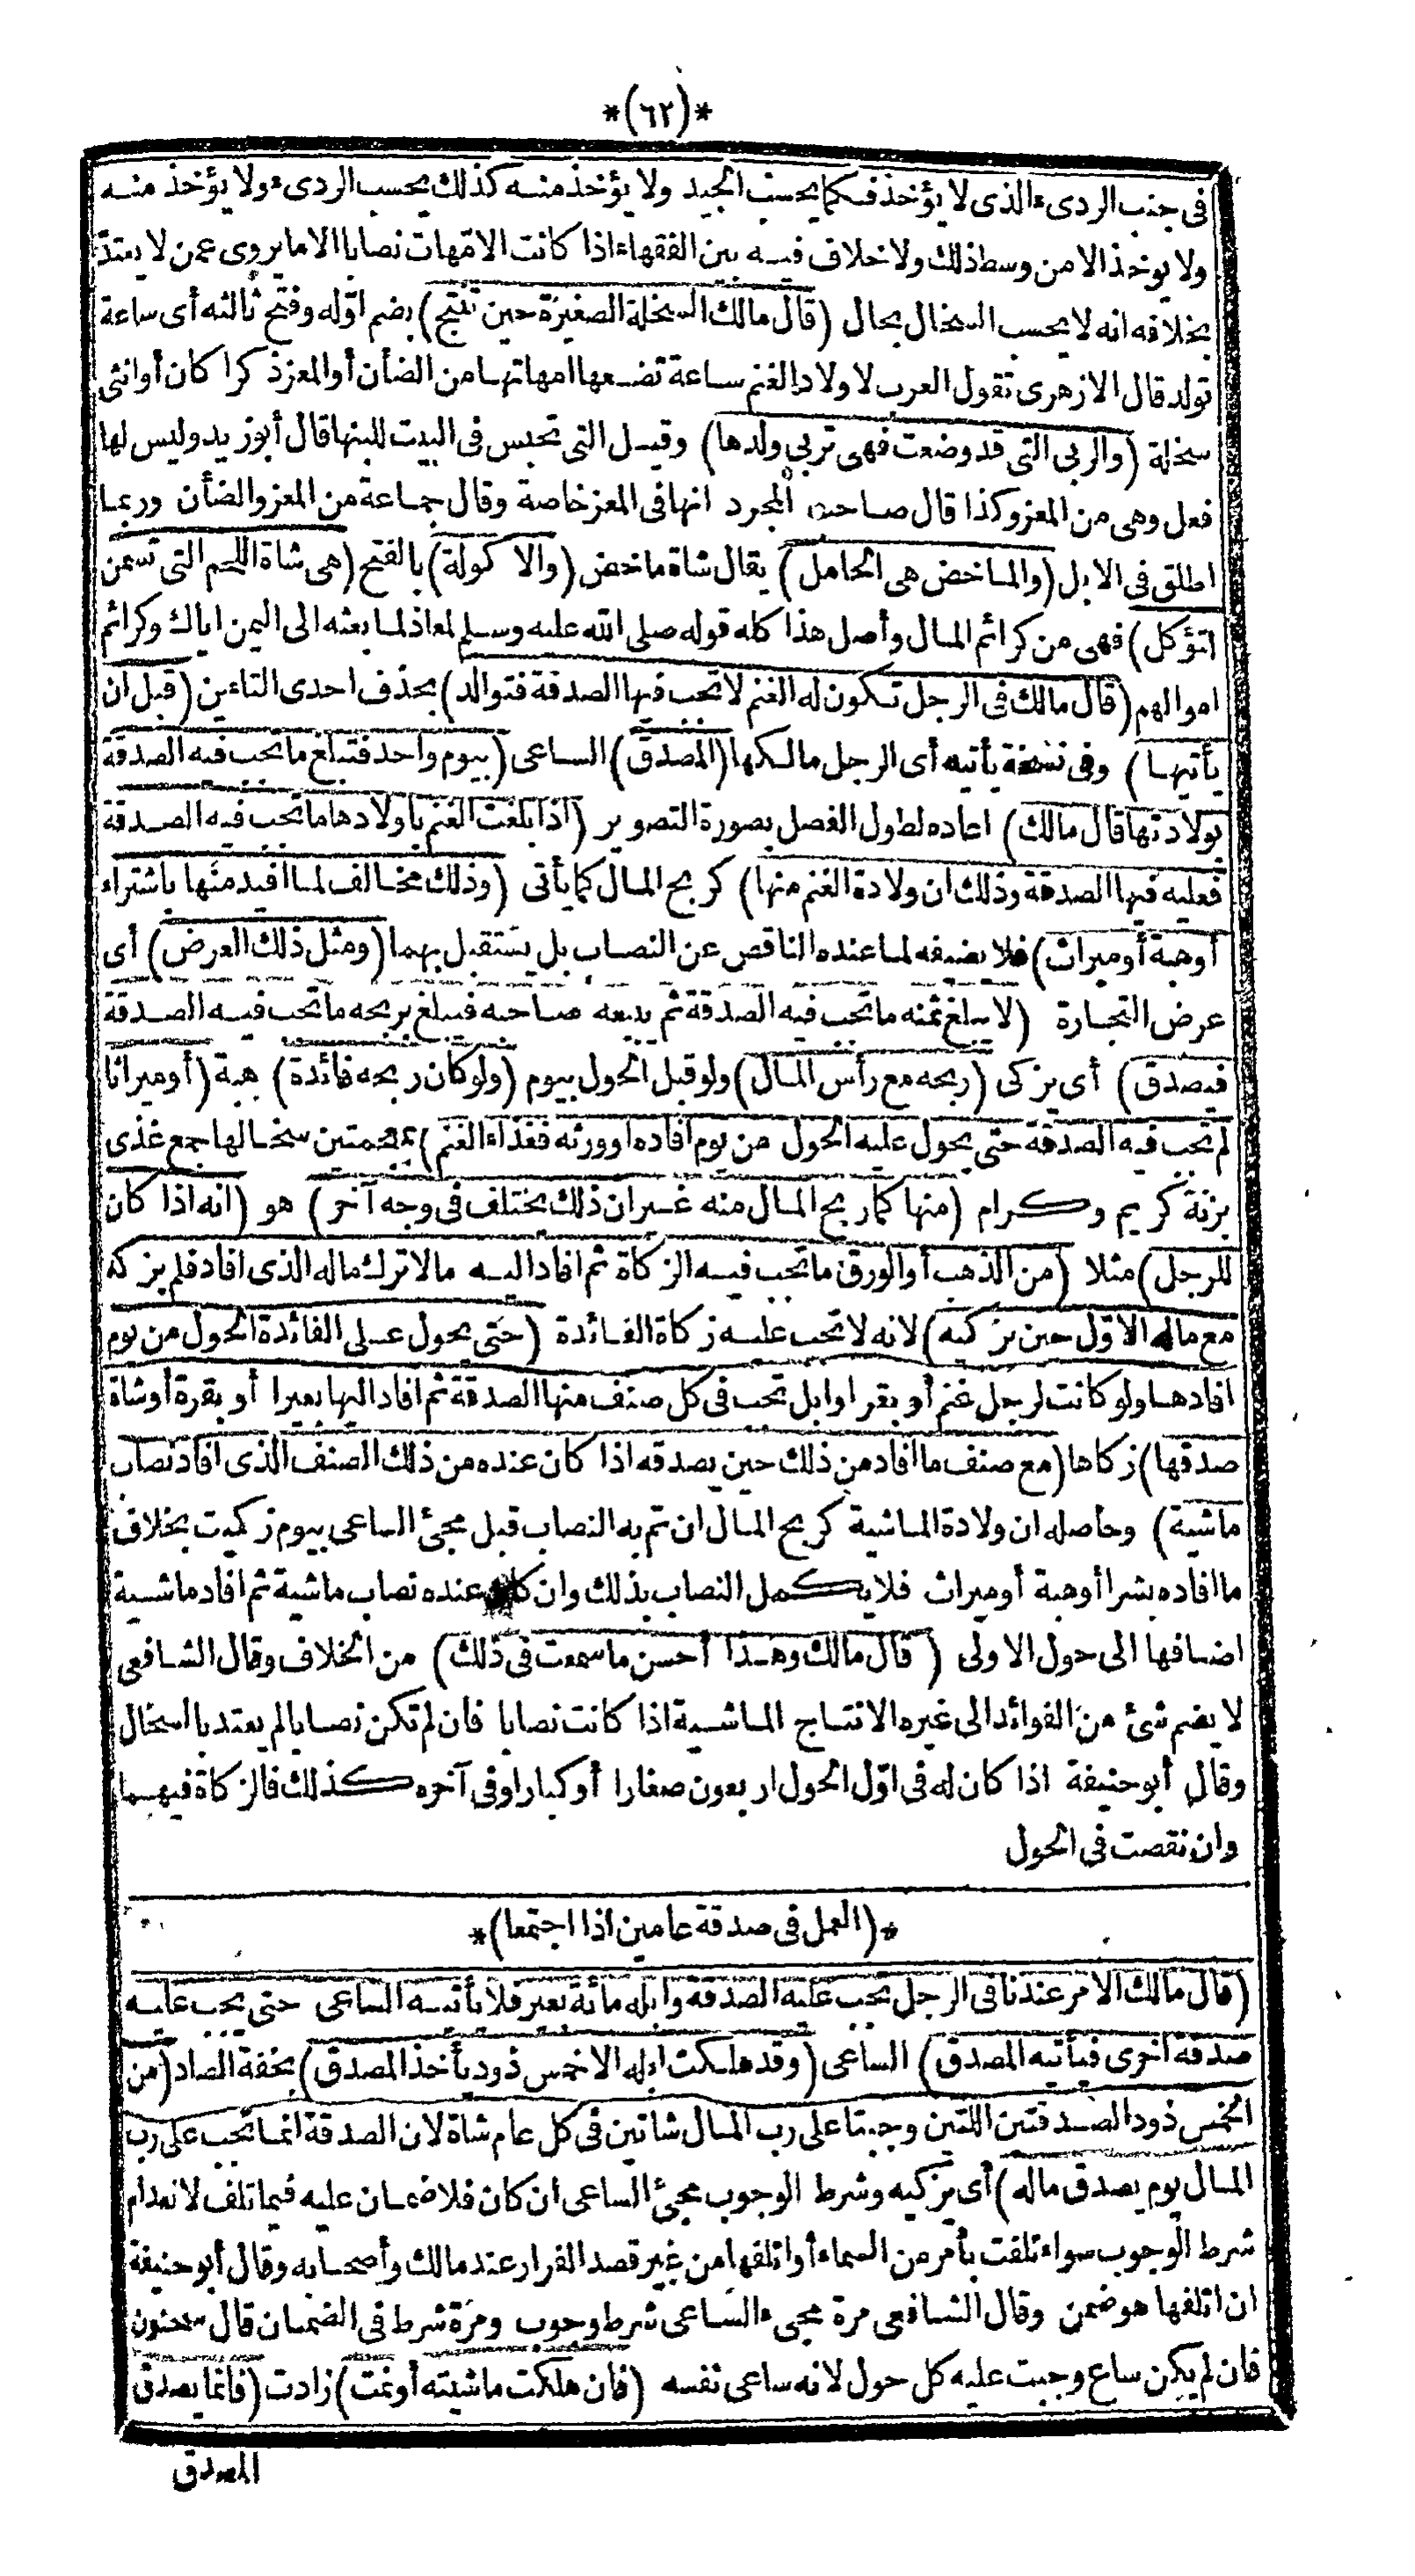 *(٦٢)*
فى جنب الردىء الذى لا يؤخذ فكما يحسب الجيد ولا يؤخذ منه كذلك يحسب الردىء ولا يؤخذ منه
ولا يوخذ الا من وسط ذلك ولا خلاف فيه بين الفقهاء اذا كانت الامّهات نصابا الا ما يروى عمن لا يعتدّ
بخلافه انه لا يحسب السخال بحال (قال مالك السخلة الصغيرة حين تنتج) بضم اوّله وفتح ثالثه أى ساعة
تولد قال الازهرى تقول العرب لا ولاد الغنم ساعة تضعها امهاتها من الضأن أو المعز ذكرا كان أو انثى
سخلة (والربى التى قد وضعت فهى تربى ولدها) وقيل التى تحبس فى البيت للبنها قال أبو زيد وليس لها
فعل وهى من المعز وكذا قال صاحب المجرد انها فى المعز خاصة وقال جماعة من المعز والضأن وربما
اطلق فى الابل (والماخض هى الحامل) يقال شاة ماخض (والاكولة) بالفتح (هى شاة اللحم التى تسمن
لتؤكل) فهى من كرائم المال وأصل هذا كله قوله صلى الله عليه وسلم لمعاذ لما بعثه الى اليمن اياك وكرائم
اموالهم (قال مالك فى الرجل تكون له الغنم لا تجب فيها الصدقة فتوالد) بحذف احدى التاءين (قبل ان
يأتيها) وفى نسخة يأتيه أى الرجل مالكها (المصدق) الساعى (بيوم واحد فتبلغ ما تجب فيه الصدقة
بولادتها قال مالك) اعاده لطول الفصل بصورة التصوير (اذا بلغت الغنم بأولادها ما تجب فيه الصدقة
فعليه فيها الصدقة وذلك ان ولادة الغنم منها) كربح المال كما يأتى (وذلك مخالف لما افيد منها باشتراء
أو هبة أو ميراث) فلا يضيفه لما عنده الناقص عن النصاب بل يستقبل بهما (ومثل ذلك العرض) أى
عرض التجارة (لا يبلغ ثمنه ما تجب فيه الصدقة ثم يبيعه صاحبه فيبلغ بربحه ما تجب فيه الصدقة
فيصدق) أى يزكى (ربحه مع رأس المال) ولو قبل الحول بيوم (ولو كان ربحه فائدة) هبة (أو ميراثا
لم تجب فيه الصدقة حتى يحول عليه الحول من يوم افاده او ورثه فغذاء الغنم) بمعجمتين سخالها جمع غذى
بزنة كريم وكرام (منها كما ربح المال منه غير ان ذلك يختلف فى وجه آخر) هو (انه اذا كان
للرجل) مثلا (من الذهب أو الورق ما تجب فيه الزكاة ثم افاد اليه مالا ترك ماله الذى افاد فلم يزكه
مع ماله الاوّل حين يزكيه) لانه لا تجب عليه زكاة الفائدة (حتى يحول على الفائدة الحول من يوم
افادها ولو كانت لرجل غنم أو بقر او ابل تجب فى كل صنف منها الصدقة ثم افاد اليها بعيرا أو بقرة أو شاة
صدقها) زكاها (مع صنف ما افاد من ذلك حين يصدقه اذا كان عنده من ذلك الصنف الذى افاد نصاب
ماشية) وحاصله ان ولادة الماشية كربح المال ان تم به النصاب قبل مجئ الساعى بيوم زكيت بخلاف
ما افاده بشرا أو هبة أو ميراث فلا يكمل النصاب بذلك وان كان عنده نصاب ماشية ثم افاد ماشية
اضافها الى حول الاولى (قال مالك وهذا أحسن ما سمعت فى ذلك) من الخلاف وقال الشافعى
لا يضم شئ من الفوائد الى غيره الا نتاج الماشية اذا كانت نصابا فان لم تكن نصابا لم يعتد بالسخال
وقال أبو حنيفة اذا كان له فى اوّل الحول اربعون صغارا أو كبارا وفى آخره كذلك فالزكاة فيهما
وان نقصت فى الحول
*(العمل فى صدقة عامين اذا اجتمعا)*
(قال مالك الامر عندنا فى الرجل تجب عليه الصدقة وابله مائة بعير فلا يأتيه الساعى حتى يجب عليه
صدقة اخرى فيأتيه المصدق) الساعى (وقد هلكت ابله الا خمس ذود يأخذ المصدق) بخفة الصاد (من
الخمس ذود الصدقتين اللتين وجبتا على رب المال شاتين فى كل عام شاة لان الصدقة انما تجب على رب
المال يوم يصدق ماله) أى يزكيه وشرط الوجوب مجئ الساعى ان كان فلا ضمان عليه فيما تلف لانعدام
شرط الوجوب سواء تلفت بأمر من السماء أو اتلفها من غير قصد الفرار عند مالك وأصحابه وقال أبو حنيفة
ان اتلفها هو ضمن وقال الشافعى مرة مجىء الساعى شرط وجوب ومرّة شرط فى الضمان قال سحنون
فان لم يكن ساع وجبت عليه كل حول لانه ساعى نفسه (فان هلكت ماشيته أو نمت) زادت (فانما يصدق
المصدق